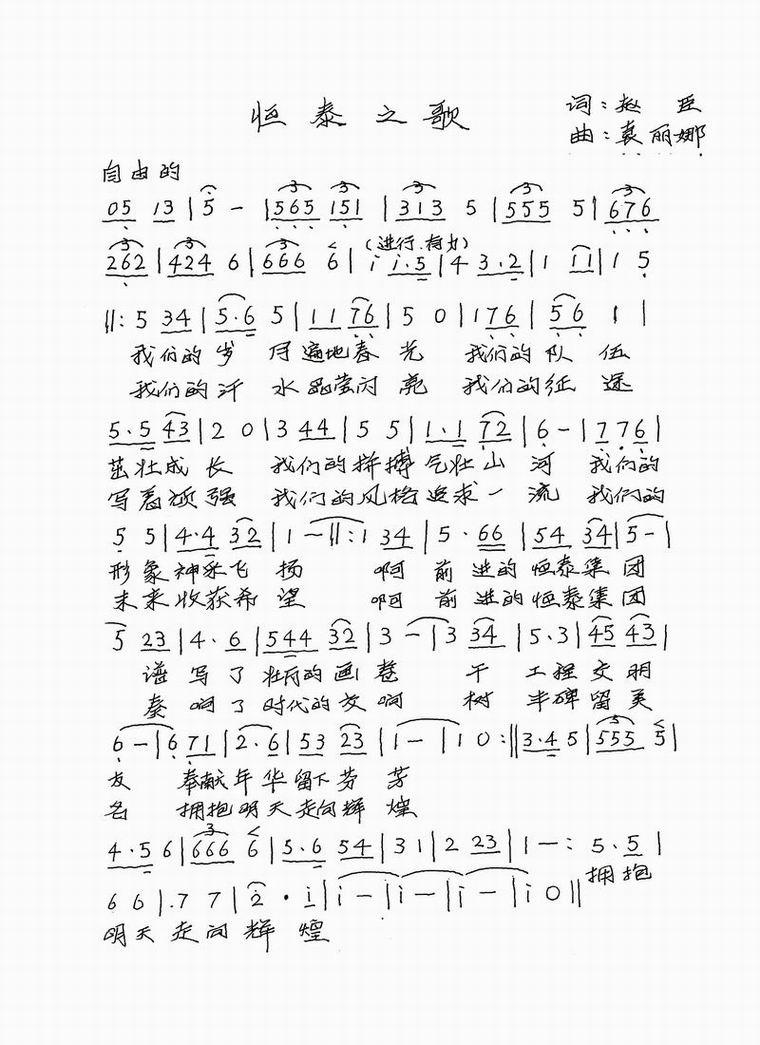 恒泰之歌
词：赵臣
曲：袁丽娜
自由的
05 13 | 5 - | 565 151 | 313 5 | 555 5 | 676
262 | 424 6 | 666 6 | i i.5 | 4 3.2 | 1 11 | 1 5
(进行.
||: 5 34 | 5.6 5 | 11 76 | 5 0 | 176 | 56 1 |
我们的岁 月遍地春光 我们的队伍
我们的汗 水晶莹闪亮 我们的征途
5.5 43 | 2 0 | 3 44 | 5 5 | 1.1 72 | 6 - | 7 76 |
茁壮成长 我们的拼搏气壮山河 我们的
写着顽强 我们的风格追求一流 我们的
5 5 | 4.4 32 | 1 - :||: 1 34 | 5 . 66 | 54 34 | 5 - |
形象神采飞扬 啊 前进的恒泰集团
未来收获希望 啊 前进的恒泰集团
5 23 | 4 . 6 | 544 32 | 3 - | 3 34 | 5.3 | 45 43 |
谱写了壮丽的画卷 干 工程交明
奏响了时代的 树 丰碑留美
6 - | 6 71 | 2.6 | 53 23 | 1 - | 1 0 :|| 3.4 5 | 555 5 |
友 奉献年华留下芬芳
名 拥抱明天走向辉煌
4.5 6 | 666 6 | 5.6 54 | 3 1 | 2 23 | 1 - : 5.5 |
拥抱
6 6 | .7 7 | 2 . i | i - | i - | i - | i 0 ||
明天走向辉煌